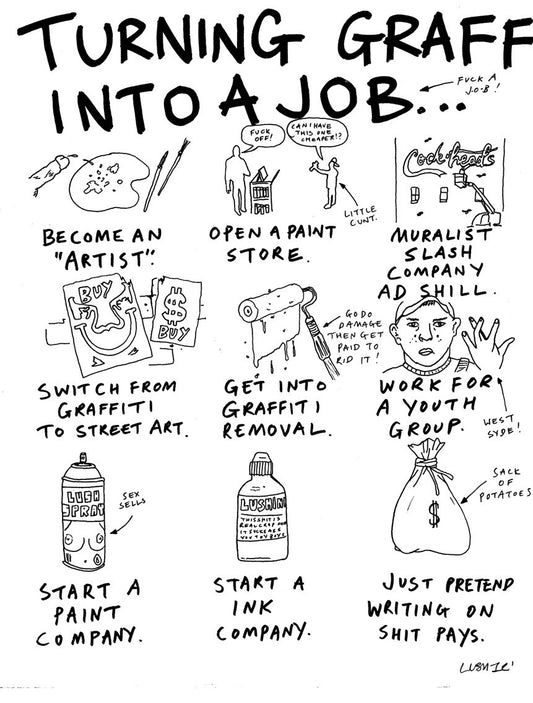 TURNING GRAFF
INTO A JOB...
FUCK A
J.O.B!
FUCK
OFF!
CAN I HAVE
THIS ONE
CHEAPER!?
LITTLE
CUNT.
Cock-heads
BECOME AN
"ARTIST".
OPEN A PAINT
STORE.
MURALIST
SLASH
COMPANY
AD SHILL.
BUY
$
BUY
GO DO
DAMAGE
THEN GET
PAID TO
RID IT!
SWITCH FROM
GRAFFITI
TO STREET ART.
GET INTO
GRAFFITI
REMOVAL.
WORK FOR
A YOUTH
GROUP.
WEST
SYDE!
LUSH
SPRAY
SEX
SELLS
LUSHINK
THIS SHIT IS
REAL CRAP
YOU TOY BOYS
$
SACK
OF
POTATOES
START A
PAINT
COMPANY.
START A
INK
COMPANY.
JUST PRETEND
WRITING ON
SHIT PAYS.